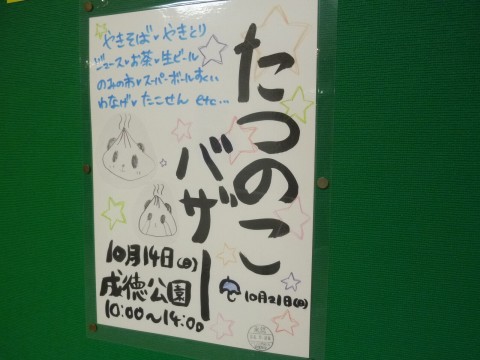 やきそば♥やきとり
ジュース♥お茶♥生ビール
のみの市♥スーパーボールすくい
わなげ♥たこせん etc…
たつのこ
バザー
10月14日(日)
成徳公園
10:00～14:00
10月21日(日)